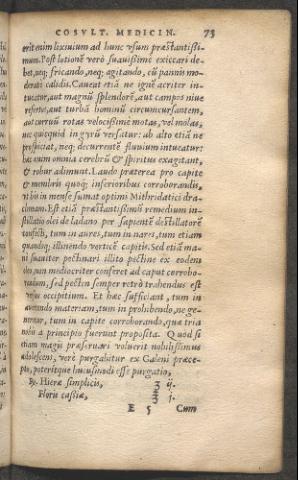 COSVLT. MEDICIN. 73
erit enim lixiuium ad hunc vsum præstantissi-
mum. Post lotionē verò suauissimè exiccari de-
bet, neq; fricando, neq; agitando, cū pannis mo-
derati calidis. Caueat etiā ne ignē acriter in-
tueatur, aut magnū splendorē, aut campos niue
refertos, aut turbā hominū circumcursantem,
aut curruū rotas velocissimè motas, vel molas,
nec quicquid in gyrū versatur: ab alto etiā ne
prospiciat, neq; decurrentē fluuium intueatur:
hæc enim omnia cerebrū & spiritus exagitant,
& robur adimunt. Laudo præterea pro capite
& membris quoq; inferioribus corroborandis,
vt bis in mense sumat optimi Mithridatici dra-
chmam. Est etiā præstantissimū remedium in-
stillatio olei de ladano per sapientē destillatorē
confecti, tum in aures, tum in nares, tum etiam
quandoq; illinendo verticē capitis. Sed etiā ma-
nè suauiter pectinari illito pectine ex eodem
oleo, non mediocriter conferet ad caput corrobo-
randum, sed pecten semper retrò trahendus est
versus occipitium. Et hæc sufficiant, tum in
auertendo materiam, tum in prohibendo, ne ge-
neretur, tum in capite corroborando, quæ tria
nobis à principio fuerunt proposita. Quòd si
etiam magis præseruari voluerit nobilissimus
adolescens, verè purgabitur ex Galeni præce-
pto, poteritque huiusmodi esse purgatio,
℞. Hieræ simplicis, ʒ ij.
Floris cassiæ, ℥ j.
E 5 Cum